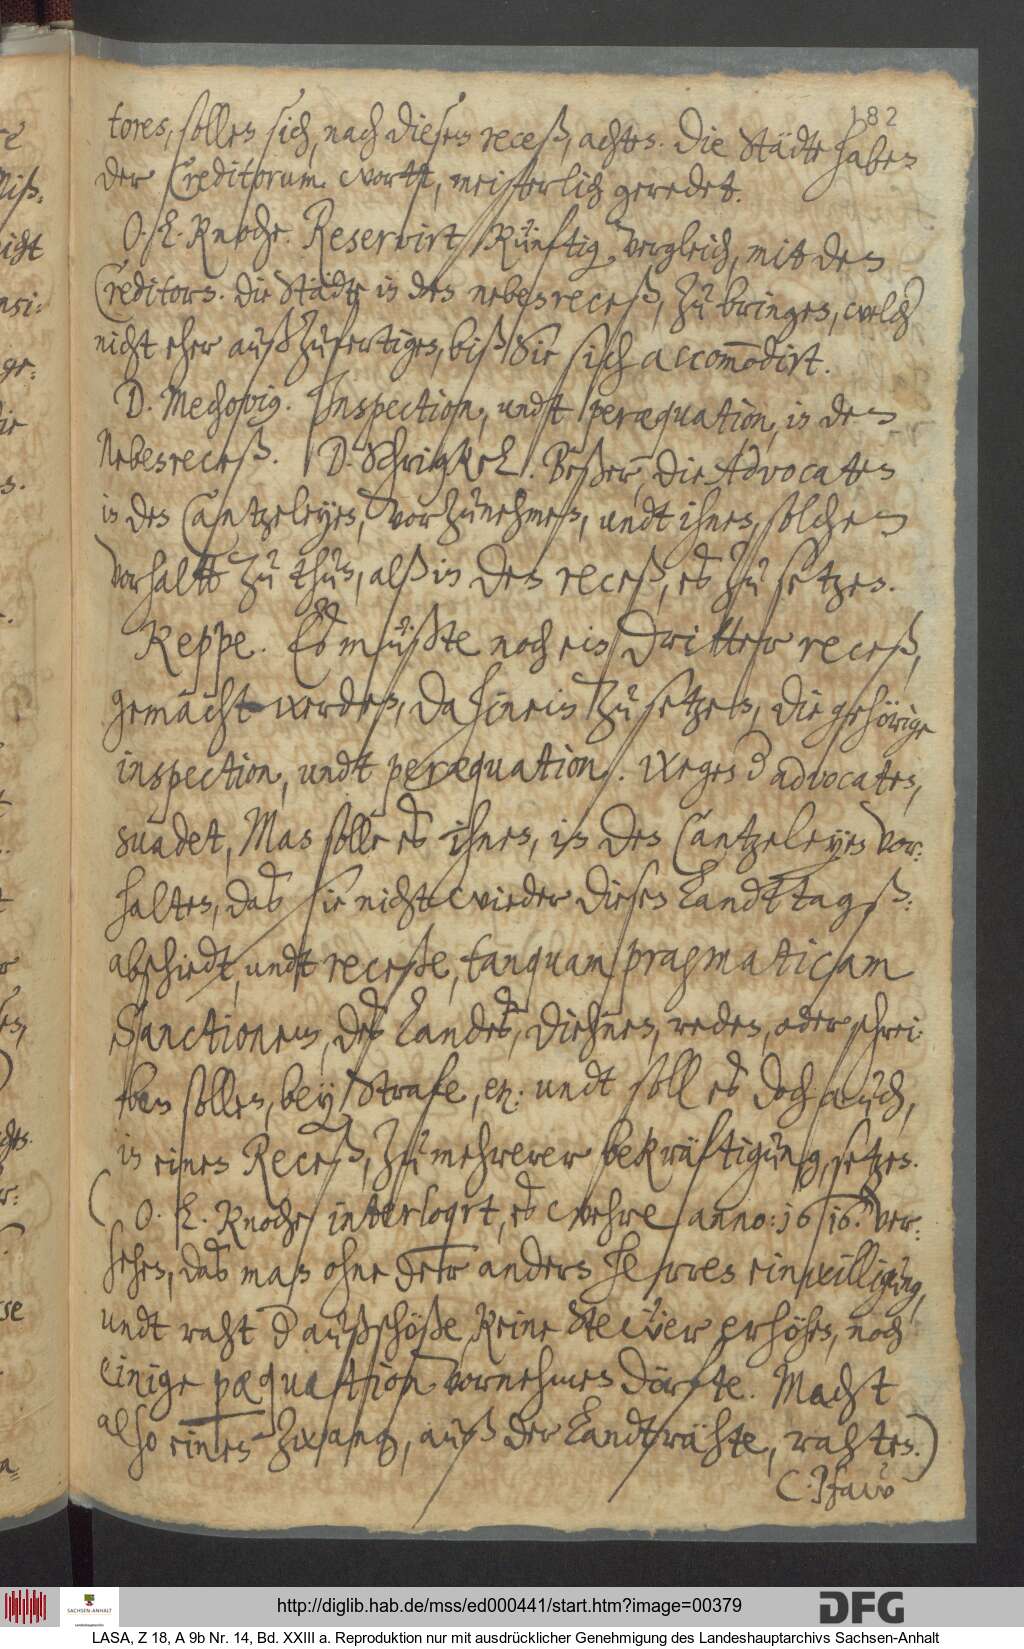 182
tores, sollen sich, nach diesem receß, achten. Die Städte haben
der Creditorum wortt, meisterlich geredet.
O. L. Knoche. Reservirt künftig vergleich, mit den
Creditorn. die Städte in den nebenreceß, zu bringen, welch
nicht eher außzufertigen, biß Sie sich accom̅odirt.
D. Mechovig. Inspection, undt peræquation, in den
Nebenreceß. D. Schrigkel. Beßer, die Advocaten
in den Cantzeleyen, vorzunehmen, undt ihnen, solchen
vorhaltt zu thun, alß in den receß, es zu setzen.
Keppe. Es müßte noch ein dritter receß,
gemacht werden, dahinein zu setzen, die gehörige
inspection, undt peræquation. Wegen d advocaten,
suadet, Man solle es ihnen, in den Cantzeleyen vor:
halten, das sie nicht wieder diesen Landttagß:
abschiedt, undt receße, tanquam pragmaticam
Sanctionem, des Landes, diehnen, reden, oder schrei:
ben sollen, bey Strafe, etc: undt soll es doch auch,
in einen Receß, zu mehrerer bekräftigung, setzen.
(O. L. Knoche interloqrt, es wehre anno: 1616. ver:
sehen, das man ohne der andern Herren einwilligung,
undt raht d außschöße, keine Steüer erhöhen, noch
einige pæquation vornehmen dörfte. Macht
also einen Zwang, auß der Landträhte, rahten.)
C. Pfaw
http://diglib.hab.de/mss/ed000441/start.htm?image=00379
SACHSEN-ANHALT
DFG
LASA, Z 18, A 9b Nr. 14, Bd. XXIII a. Reproduktion nur mit ausdrücklicher Genehmigung des Landeshauptarchivs Sachsen-Anhalt